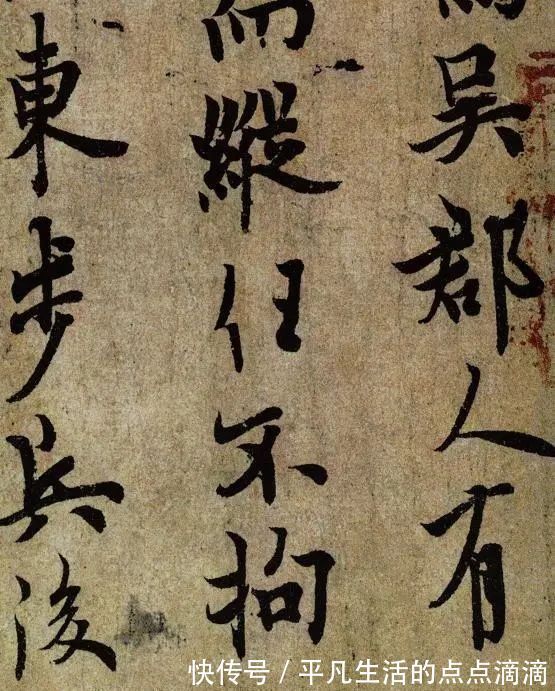 吴郡人有
而縱任不拘
東步兵後
快传号 / 平凡生活的点点滴滴